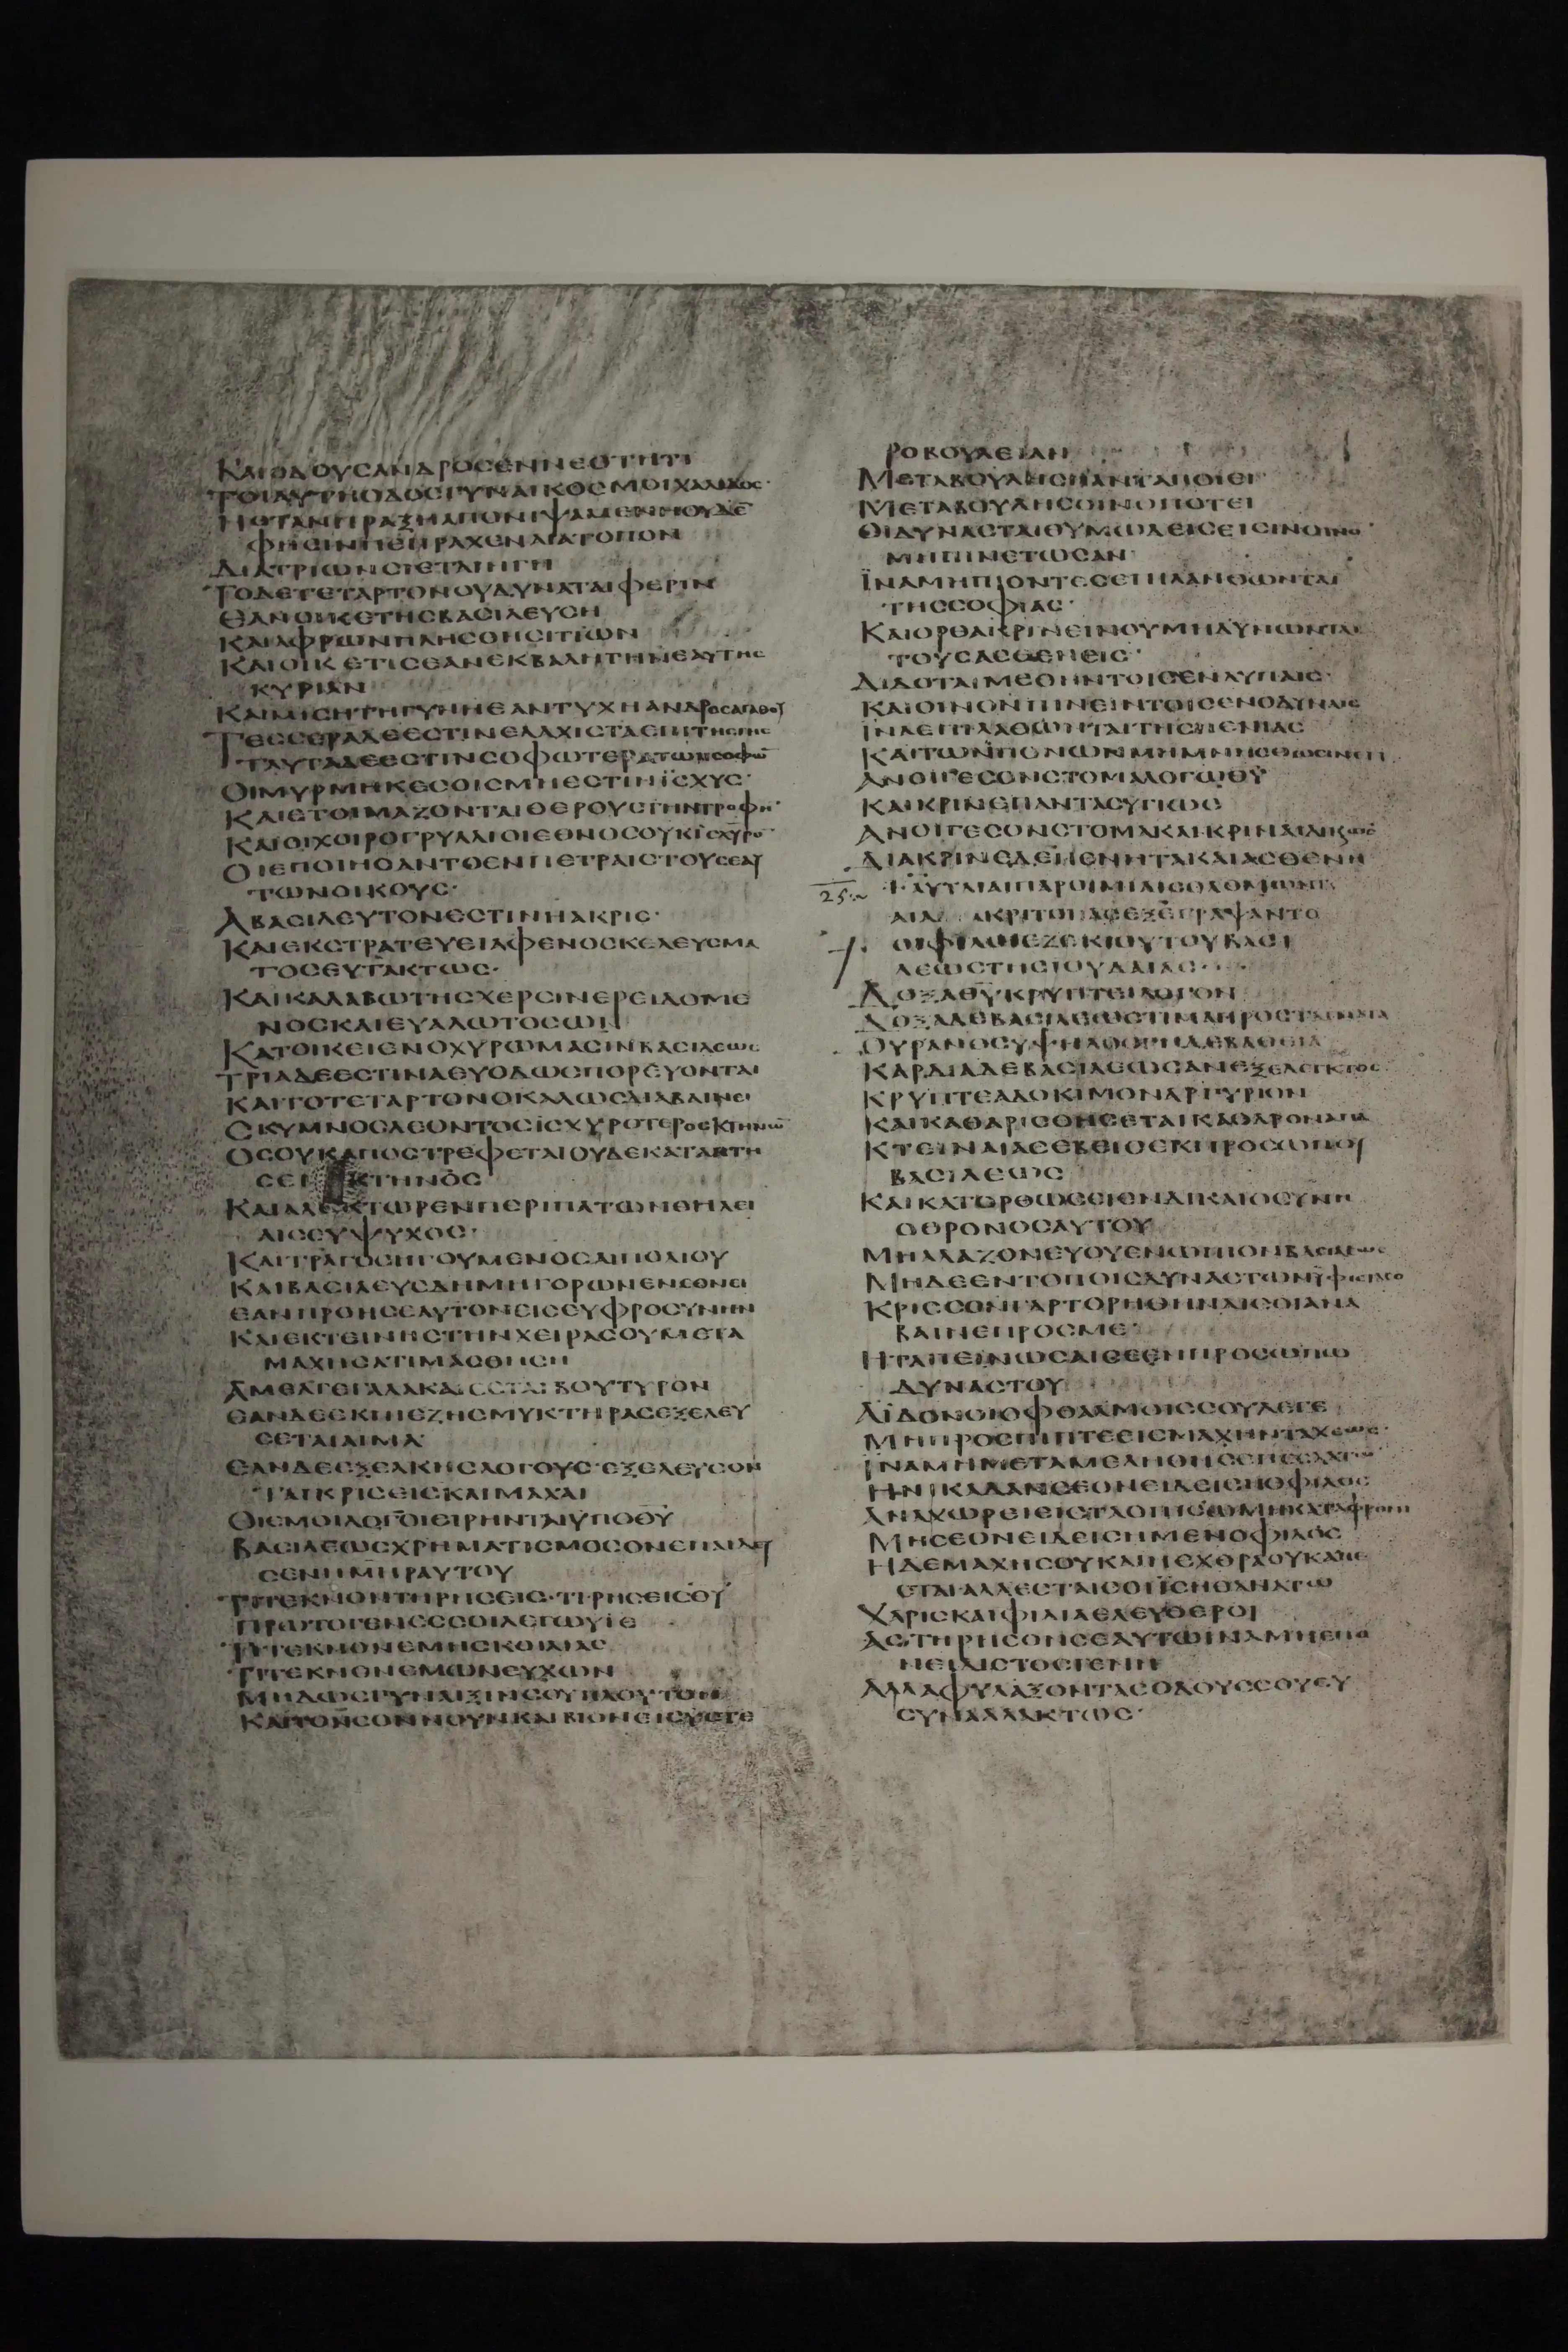 ΚΑΙΟΔΟΥΣΑΝΔΡΟΣΕΝΝΕΟΤΗΤΙ
ΤΟΙΑΥΤΗΟΔΟΣΓΥΝΑΙΚΟΣΜΟΙΧΑΛΙΔΟΣ·
ΗΟΤΑΝΠΡΑΞΗΑΠΟΝΙΨΑΜΕΝΗΟΥΔΕ̅
ΦΗΣΙΝΠΕΠΡΑΧΕΝΑΙΑΤΟΠΟΝ
ΔΙΑΤΡΙΩΝΣΙΕΤΑΙΗΓΗ
ΤΟΔΕΤΕΤΑΡΤΟΝΟΥΔΥΝΑΤΑΙΦΕΡΙΝ
ΕΑΝΟΙΚΕΤΗΣΒΑΣΙΛΕΥΣΗ
ΚΑΙΑΦΡΩΝΠΛΗΣΘΗΣΙΤΙΩΝ
ΚΑΙΟΙΚΕΤΙΣΕΑΝΕΚΒΑΛΗΤΗΝΕΑΥΤΗΣ
ΚΥΡΙΑΝ
ΚΑΙΜΙΣΗΤΗΓΥΝΗΕΑΝΤΥΧΗΑΝΔΡΟΣΑΓΑΘΟΥ
ΤΕΣΣΕΡΑΔΕΕΣΤΙΝΕΛΑΧΙΣΤΑΕΠΙΤΗΣΓΗΣ
ΤΑΥΤΑΔΕΕΣΤΙΝΣΟΦΩΤΕΡΑΤΩΝΣΟΦΩ̅
ΟΙΜΥΡΜΗΚΕΣΟΙΣΜΗΕΣΤΙΝΪΣΧΥΣ·
ΚΑΙΕΤΟΙΜΑΖΟΝΤΑΙΘΕΡΟΥΣΤΗΝΤΡΟΦΗ̅·
ΚΑΙΟΙΧΟΙΡΟΓΡΥΛΛΙΟΙΕΘΝΟΣΟΥΚΙΣΧΥΡΟ̅·
ΟΙΕΠΟΙΗΣΑΝΤΟΕΝΠΕΤΡΑΙΣΤΟΥΣΕΑΥ
ΤΩΝΟΙΚΟΥΣ·
ΑΒΑΣΙΛΕΥΤΟΝΕΣΤΙΝΗΑΚΡΙΣ·
ΚΑΙΕΚΣΤΡΑΤΕΥΕΙΑΦΕΝΟΣΚΕΛΕΥΣΜΑ
ΤΟΣΕΥΤΑΚΤΩΣ·
ΚΑΙΚΑΛΑΒΩΤΗΣΧΕΡΣΙΝΕΡΕΙΔΟΜΕ
ΝΟΣΚΑΙΕΥΑΛΩΤΟΣΩΝ
ΚΑΤΟΙΚΕΙΕΝΟΧΥΡΩΜΑΣΙΝΒΑΣΙΛΕΩΣ
ΤΡΙΑΔΕΕΣΤΙΝΑΕΥΟΔΩΣΠΟΡΕΥΟΝΤΑΙ
ΚΑΙΤΟΤΕΤΑΡΤΟΝΟΚΑΛΩΣΔΙΑΒΑΙΝΕΙ
ΣΚΥΜΝΟΣΛΕΟΝΤΟΣΪΣΧΥΡΟΤΕΡΟΣΚΤΗΝΩ̅
ΟΣΟΥΚΑΠΟΣΤΡΕΦΕΤΑΙΟΥΔΕΚΑΤΑΠΤΗ
ΣΕΙ ΚΤΗΝΟΣ
ΚΑΙΑΛΕΚΤΩΡΕΝΠΕΡΙΠΑΤΩΝΘΗΛΕΙ
ΑΙΣΕΥΨΥΧΟΣ·
ΚΑΙΤΡΑΓΟΣΗΓΟΥΜΕΝΟΣΑΙΠΟΛΙΟΥ
ΚΑΙΒΑΣΙΛΕΥΣΔΗΜΗΓΟΡΩΝΕΝΕΘΝΕΙ
ΕΑΝΠΡΟΗΣΕΑΥΤΟΝΕΙΣΕΥΦΡΟΣΥΝΗΝ
ΚΑΙΕΚΤΕΙΝΗΣΤΗΝΧΕΙΡΑΣΟΥΜΕΤΑ
ΜΑΧΗΣΑΤΙΜΑΣΘΗΣΗ
ΑΜΕΛΓΕΓΑΛΑΚΑΙΕΣΤΑΙΒΟΥΤΥΡΟΝ
ΕΑΝΔΕΕΚΠΙΕΖΗΣΜΥΚΤΗΡΑΣΕΞΕΛΕΥ
ΣΕΤΑΙΑΙΜΑ·
ΕΑΝΔΕΕΞΕΛΚΗΣΛΟΓΟΥΣ·ΕΞΕΛΕΥΣΟΝ
ΤΑΙΚΡΙΣΕΙΣΚΑΙΜΑΧΑΙ
ΟΙΕΜΟΙΛΟΓΟΙΕΙΡΗΝΤΑΙΫΠΟΘΥ̅
ΒΑΣΙΛΕΩΣΧΡΗΜΑΤΙΣΜΟΣΟΝΕΠΑΙΔΕΥ
ΣΕΝΗΜΗΡΑΥΤΟΥ
ΤΙΤΕΚΝΟΝΤΗΡΗΣΕΙΣ·ΤΙ·ΡΗΣΕΙΣΘΥ̅
ΠΡΩΤΟΓΕΝΕΣΣΟΙΛΕΓΩΥΙΕ
ΤΙΤΕΚΝΟΝΕΜΗΣΚΟΙΛΙΑΣ
ΤΙΤΕΚΝΟΝΕΜΩΝΕΥΧΩΝ
ΜΗΔΩΣΓΥΝΑΙΞΙΝΣΟΥΠΛΟΥΤΟΝ
ΚΑΙΤΟΝΣΟΝΝΟΥΝΚΑΙΒΙΟΝΕΙΣΥΣΤΕ
ΡΟΒΟΥΛΕΙΑΝ
ΜΕΤΑΒΟΥΛΗΣΠΑΝΤΑΠΟΙΕΙ
ΜΕΤΑΒΟΥΛΗΣΟΙΝΟΠΟΤΕΙ
ΟΙΔΥΝΑΣΤΑΙΘΥΜΩΔΕΙΣΕΙΣΙΝΟΙΝΟ̅·
ΜΗΠΙΝΕΤΩΣΑΝ·
ΪΝΑΜΗΠΙΟΝΤΕΣΕΠΙΛΑΘΩΝΤΑΙ
ΤΗΣΣΟΦΙΑΣ·
ΚΑΙΟΡΘΑΚΡΙΝΕΙΝΟΥΜΗΔΥΝΩΝΤΑΙ
ΤΟΥΣΑΣΘΕΝΕΙΣ·
ΔΙΔΟΤΑΙΜΕΘΗΝΤΟΙΣΕΝΛΥΠΑΙΣ·
ΚΑΙΟΙΝΟΝΠΙΝΕΙΝΤΟΙΣΕΝΟΔΥΝΑΙΣ
ΪΝΑΕΠΙΛΑΘΩΝΤΑΙΤΗΣΠΕΝΙΑΣ
ΚΑΙΤΩΝΠΟΝΩΝΜΗΜΝΗΣΘΩΣΙΝΕΤΙ
ΑΝΟΙΓΕΣΟΝΣΤΟΜΑΛΟΓΩΘΥ̅
ΚΑΙΚΡΙΝΕΠΑΝΤΑΣΥΓΙΩΣ
ΑΝΟΙΓΕΣΟΝΣΤΟΜΑΚΑΙΚΡΙΝΕΔΙΚΑΙΩΣ
ΔΙΑΚΡΙΝΕΔΕΠΕΝΗΤΑΚΑΙΑΣΘΕΝΗ
25
ΑΥΤΑΙΑΙΠΑΡΟΙΜΙΑΙΣΟΛΟΜΩΝΤΟΣ
ΑΙΑΔΙΑΚΡΙΤΟΙΑΣΕΞΕΓΡΑΨΑΝΤΟ
ΟΙΦΙΛΟΙΕΖΕΚΙΟΥΤΟΥΒΑΣΙ
ΛΕΩΣΤΗΣΙΟΥΔΑΙΑΣ·
ΔΟΞΑΘΥ̅ΚΡΥΠΤΕΙΛΟΓΟΝ
ΔΟΞΑΔΕΒΑΣΙΛΕΩΣΤΙΜΑΠΡΟΣΤΑΓΜΑΤΑ
ΟΥΡΑΝΟΣΥΨΗΛΟΣΓΗΔΕΒΑΘΕΙΑ
ΚΑΡΔΙΑΔΕΒΑΣΙΛΕΩΣΑΝΕΞΕΛΕΓΚΤΟΣ·
ΚΡΥΠΤΕΑΔΟΚΙΜΟΝΑΡΓΥΡΙΟΝ
ΚΑΙΚΑΘΑΡΙΣΘΗΣΕΤΑΙΚΑΘΑΡΟΝΑΠΑ̅
ΚΤΕΙΝΑΙΑΣΕΒΕΙΣΕΚΠΡΟΣΩΠΟΥ
ΒΑΣΙΛΕΩΣ
ΚΑΙΚΑΤΟΡΘΩΣΕΙΕΝΔΙΚΑΙΟΣΥΝΗ
ΟΘΡΟΝΟΣΑΥΤΟΥ
ΜΗΑΛΑΖΟΝΕΥΟΥΕΝΩΠΙΟΝΒΑΣΙΛΕΩΣ
ΜΗΔΕΕΝΤΟΠΟΙΣΔΥΝΑΣΤΩΝΫΦΙΣΤΑΣΟ
ΚΡΙΣΣΟΝΓΑΡΤΟΡΗΘΗΝΑΙΣΟΙΑΝΑ
ΒΑΙΝΕΠΡΟΣΜΕ·
ΗΤΑΠΕΙΝΩΣΑΙΣΕΕΝΠΡΟΣΩΠΩ
ΔΥΝΑΣΤΟΥ
ΑΪΔΟΝΟΙΟΦΘΑΛΜΟΙΣΟΥΛΕΓΕ
ΜΗΠΡΟΣΠΙΠΤΕΕΙΣΜΑΧΗΝΤΑΧΕΩΣ·
ΪΝΑΜΗΜΕΤΑΜΕΛΗΘΗΣΕΠΕΣΧΑΤΩ̅
ΗΝΙΚΑΑΝΣΕΟΝΕΙΔΕΙΣΗΟΦΙΛΟΣ
ΑΝΑΧΩΡΕΙΕΙΣΤΑΟΠΙΣΩΜΗΚΑΤΑΦΡΟΝΙ
ΜΗΣΕΟΝΕΙΔΕΙΣΗΜΕΝΟΦΙΛΟΣ
ΗΔΕΜΑΧΗΣΟΥΚΑΙΗΕΧΘΡΑΟΥΚΑΠΕ
ΣΤΑΙ·ΑΛΛΕΣΤΑΙΣΟΙΪΣΗΘΑΝΑΤΩ
ΧΑΡΙΣΚΑΙΦΙΛΙΑΕΛΕΥΘΕΡΟΙ
ΑΣΤΗΡΗΣΟΝΣΕΑΥΤΩΪΝΑΜΗΕΠΟ
ΝΕΙΔΙΣΤΟΣΓΕΝΗ
ΑΛΛΑΦΥΛΑΞΟΝΤΑΣΟΔΟΥΣΣΟΥΕΥ
ΣΥΝΑΛΛΑΚΤΩΣ·